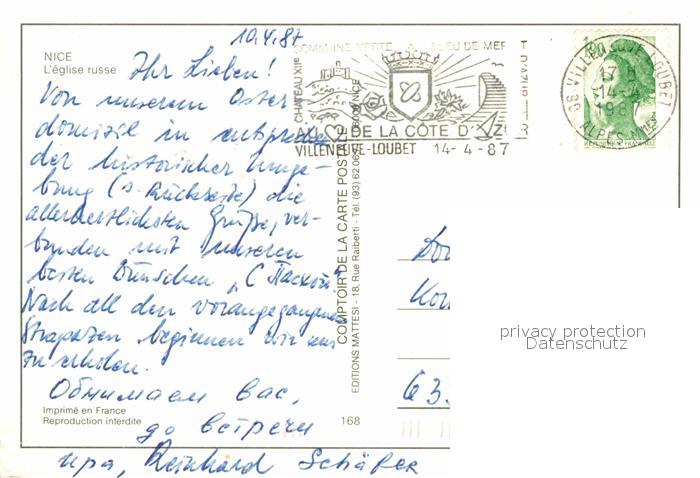 10.4.87
NICE
L'église russe
Ihr Lieben!
Von unserem Oster-
domizil in entsprechen
der historischer Umge-
bung (s. Rückseite) die
allerherzlichsten Grüße, ver-
bunden mit unseren
besten Wünschen „С Пасхой“
Nach all den vorangegangenen
Strapazen beginnen wir uns
zu erholen.
Обнимаем вас,
до встречи
Ира, Reinhard Schäfer
Imprimé en France
Reproduction interdite
168
COMPTOIR DE LA CARTE POSTALE
EDITIONS MATTESI - 18, Rue Raiberti - Tél. (93) 62.06 NICE
COMMUNE VERTE BLEU DE MER
CHATEAU XIIe
AU DE LA CÔTE D'AZUR
VILLENEUVE-LOUBET 14-4-87
06 VILLENEUVE LOUBET
17 H
14-4
1987
ALPES-MMES
Kon
63
privacy protection
Datenschutz